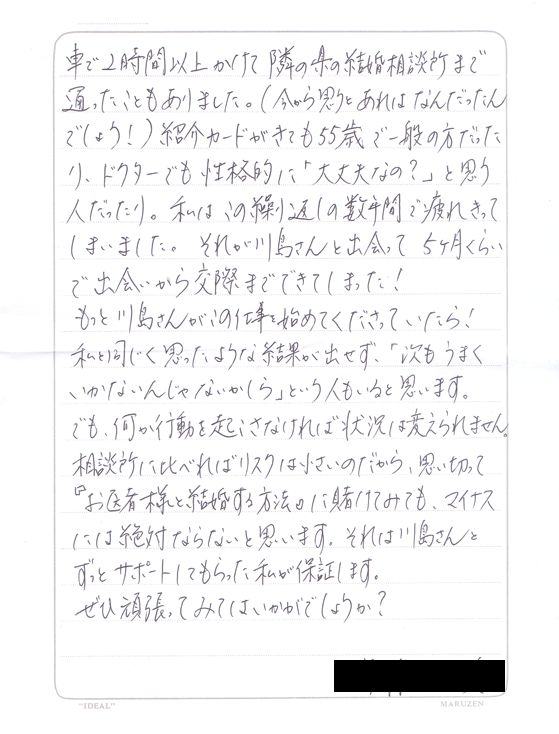 車で2時間以上かけて隣の県の結婚相談所まで
通ったこともありました。(今から思うとあれはなんだったん
でしょう!)紹介カードがきても55歳で一般の方だった
り、ドクターでも性格的に「大丈夫なの?」と思う
人だったり。私はこの繰り返しの数年間で疲れきって
しまいました。それが川島さんと出会って5ヶ月くらい
で出会いから交際までできてしまった!
もっと川島さんがこの仕事を始めてくださっていたら!
私と同じく思ったような結果が出せず、「次もうまく
いかないんじゃないかしら」という人もいると思います。
でも、何か行動を起こさなければ状況は変えられません。
相談所に比べればリスクは小さいのだから、思い切って
『お医者様と結婚する方法』に賭けてみても、マイナス
には絶対ならないと思います。それは川島さんと
ずっとサポートしてもらった私が保証します。
ぜひ頑張ってみてはいかがでしょうか?
"IDEAL" MARUZEN